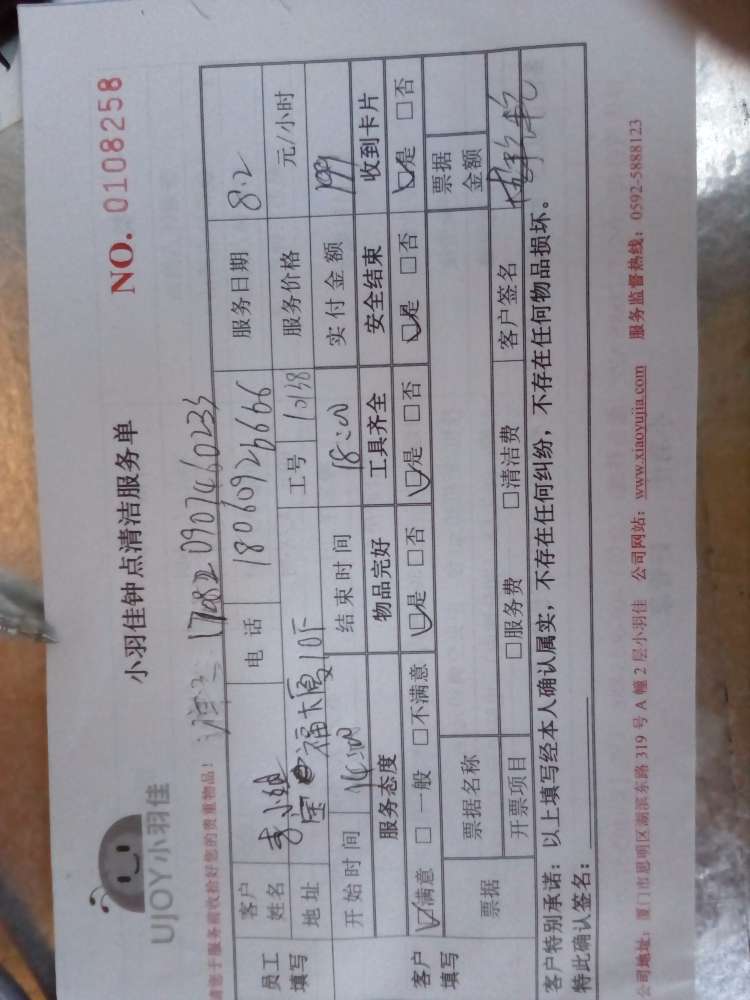 UJOY小羽佳
小羽佳钟点清洁服务单
NO. 0108258
请您于服务前收拾好您的贵重物品！
170820907460233
员工填写
客户姓名
电话 18060926666
服务日期 8.2
地址 宝福大厦10F
工号 10138
服务价格 元/小时
开始时间 14:00
结束时间 18:00
实付金额 199
客户填写
服务态度 物品完好 工具齐全 安全结束 收到卡片
☑满意 □一般 □不满意 ☑是 □否 ☑是 □否 ☑是 □否 ☑是 □否
票据
票据名称
票据金额
开票项目 □服务费 □清洁费
客户签名
客户特别承诺：以上填写经本人确认属实，不存在任何纠纷，不存在任何物品损坏。
特此确认签名：
公司地址：厦门市思明区湖滨东路319号A幢2层小羽佳 公司网站：www.xiaoyujia.com 服务监督热线：0592-5888123